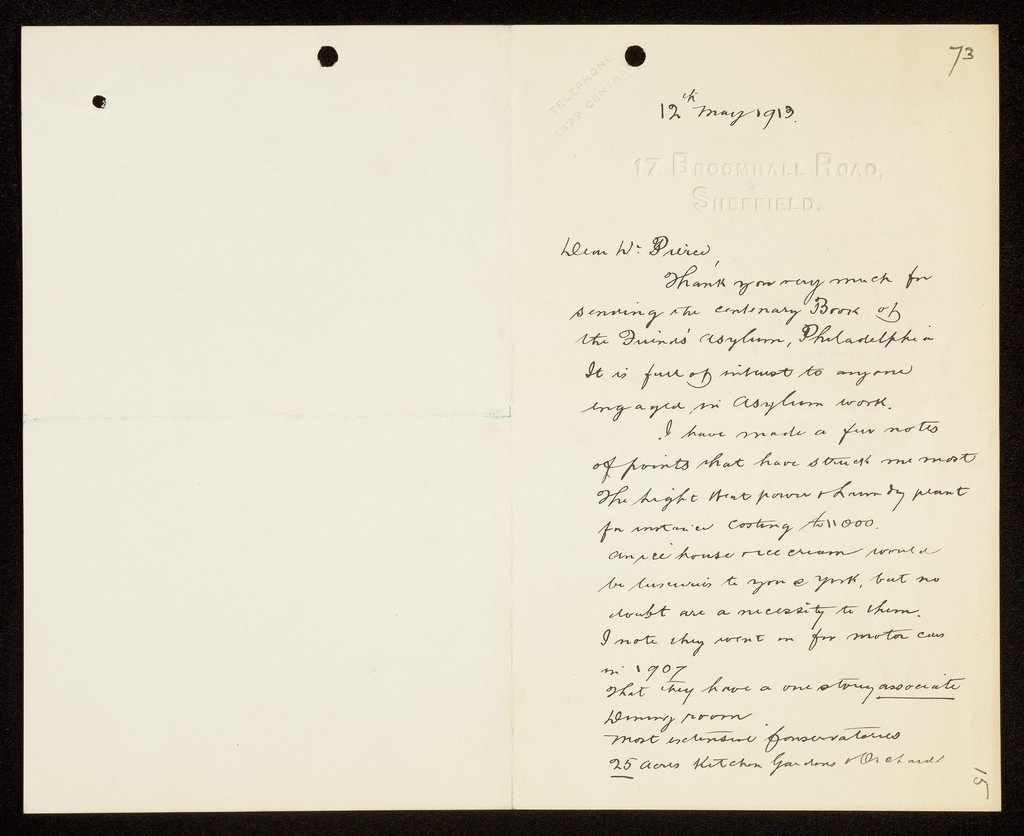 73
TELEPHONE
1399 CENTRAL
12th May 1913.
17, BROOMHALL ROAD,
SHEFFIELD.
Dear Dr. Pierce,
Thank you very much for
sending the centenary Book of
the Friends' Asylum, Philadelphia
It is full of interest to anyone
engaged in Asylum work.
I have made a few notes
of points that have struck me most
The light Heat power & Laundry plant
for instance costing 000.
an ice house & ice cream would
be luxuries to you @ York, but no
doubt are a necessity to them.
I note they went in for motor cars
in 1907
That they have a one story associate
Dining room
most extensive Conservatories
25 acres Kitchen Gardens & Orchards
15